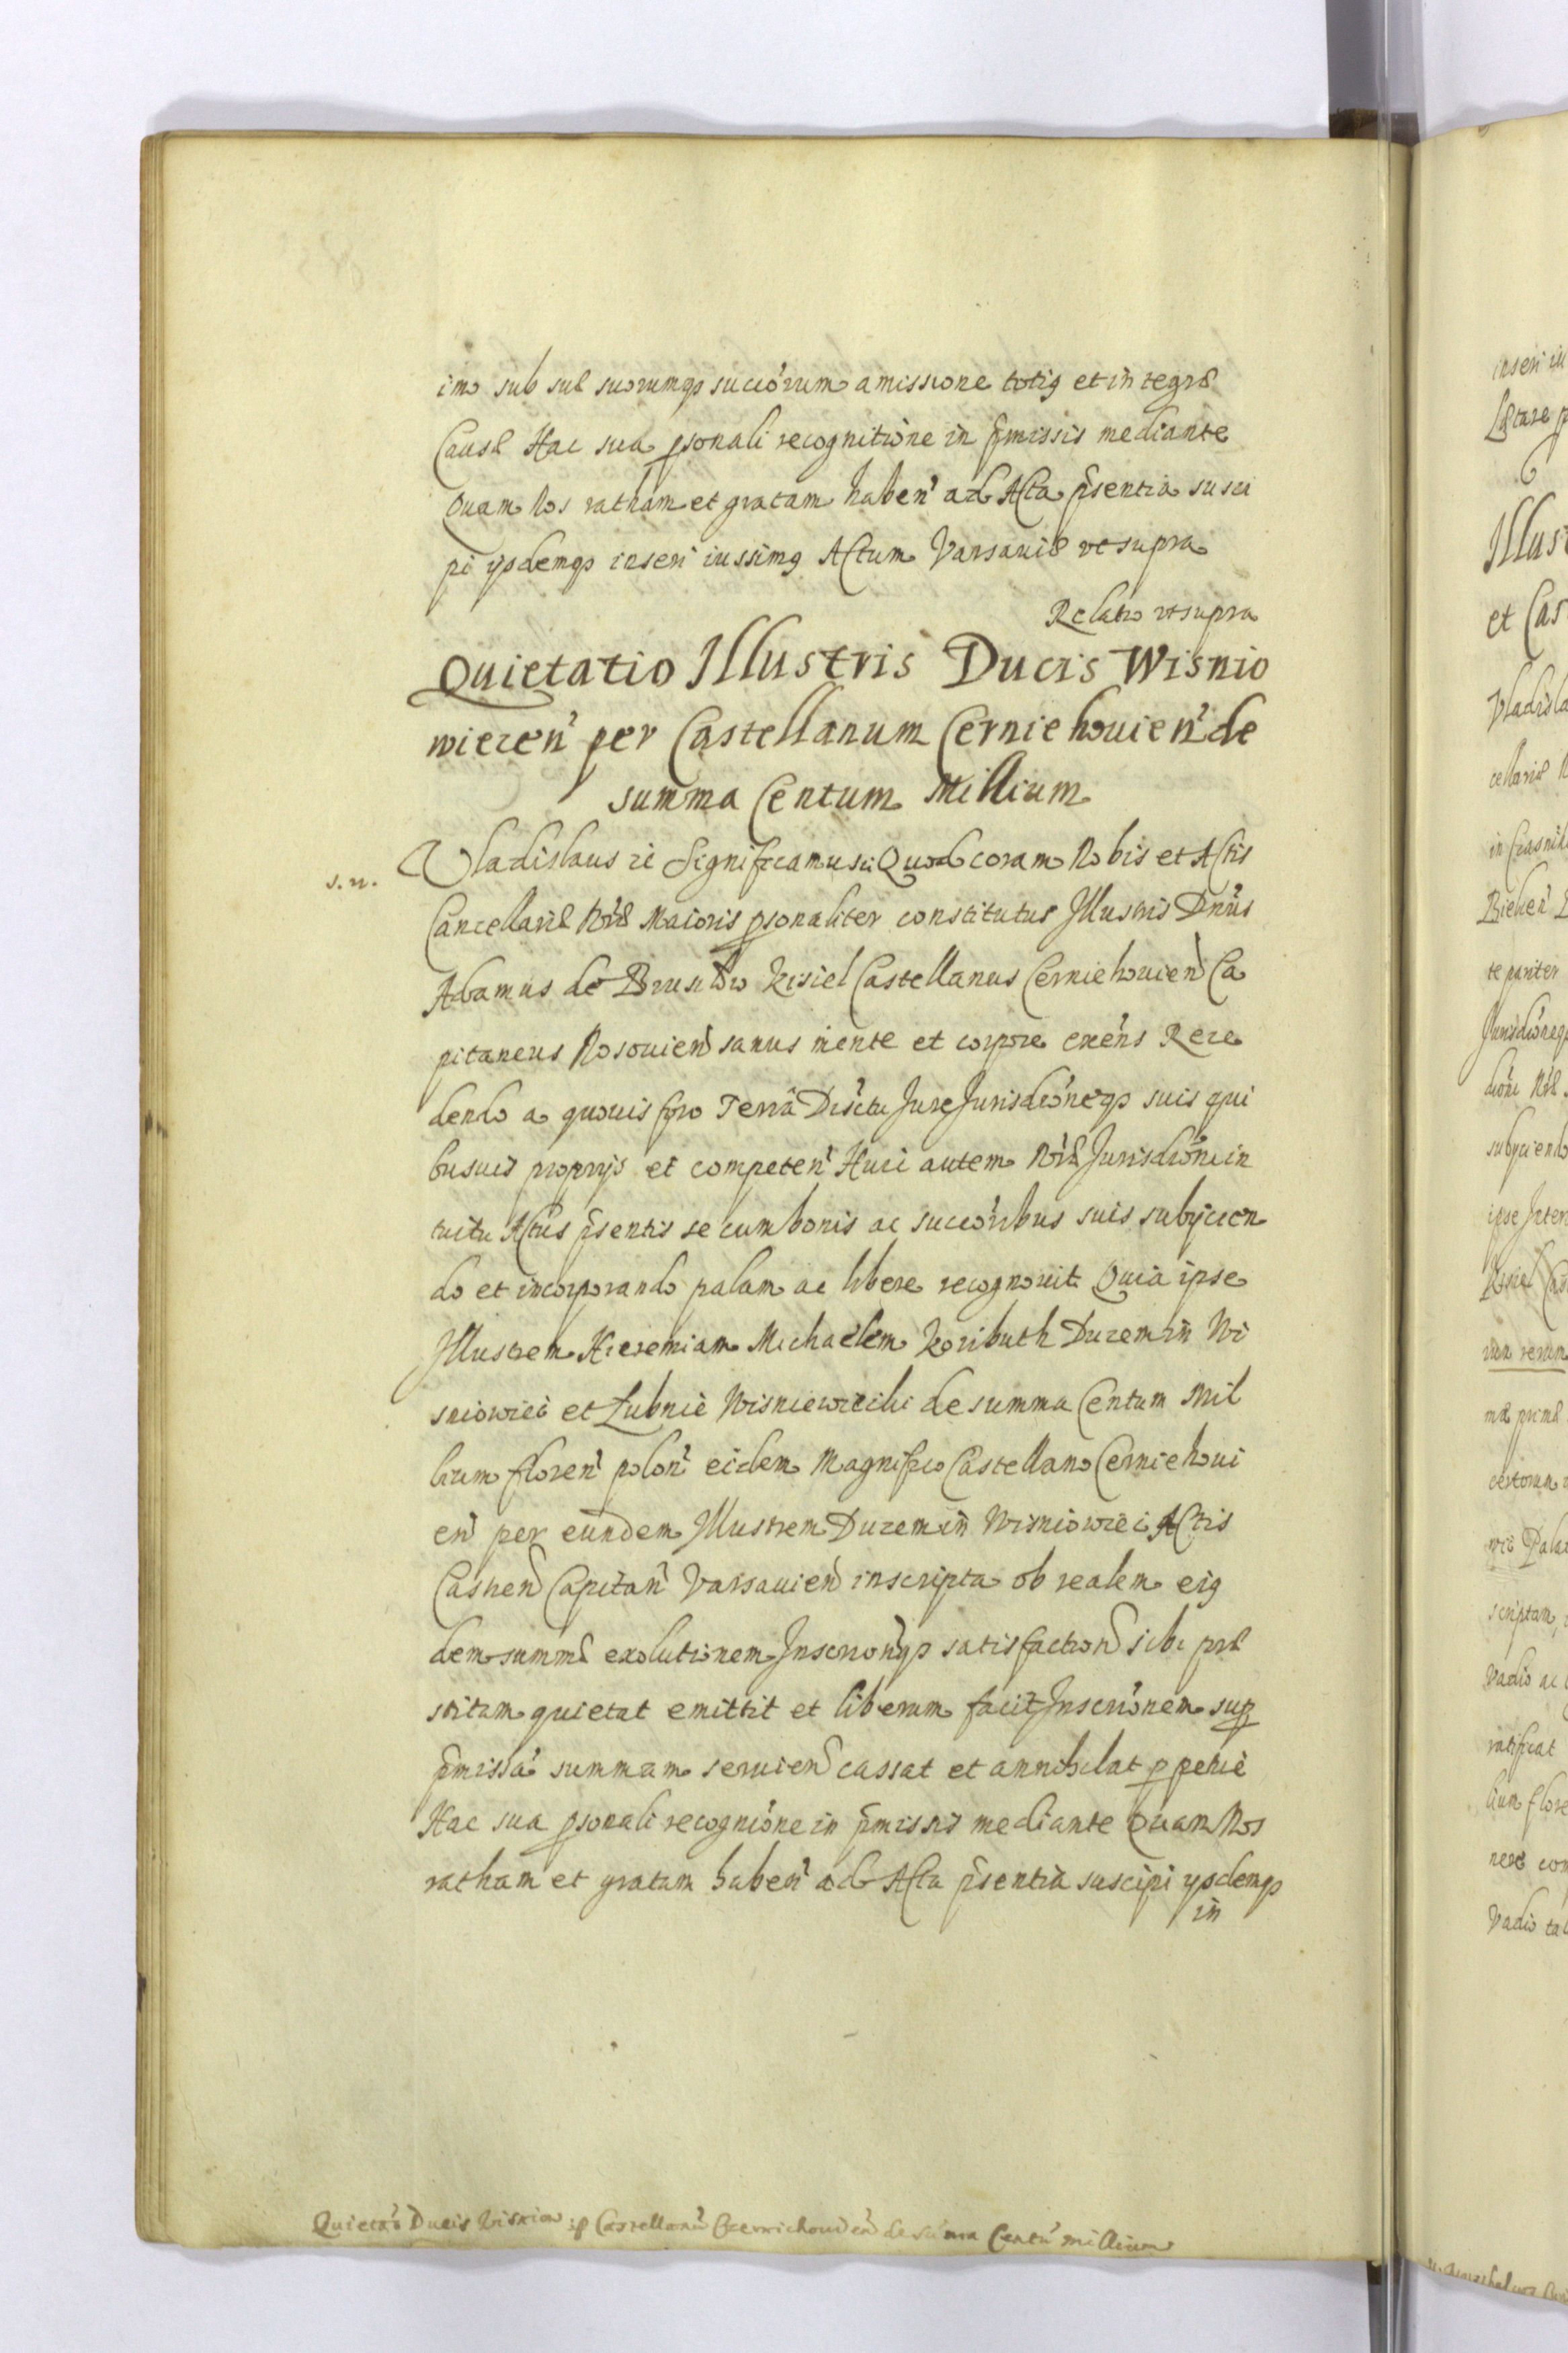 imo sub sui suorumqȝ succorum amissione totiꝯ et integræ
Causæ Hac sua ꝑsonali recognitione in p̃missis mediante
Quam Nos ratham et gratam haben̄ ad Acta p̃sentia susci
pi ysdemqȝ inseri iussimꝯ Actum Varsaviæ vt supra
Relatio vt supra
Quietatio Illustris Ducis Wisnio
wiecen̄ per Castellanum Czerniehouien̄ de
summa Centum Millium
s. n.
Vladislaus zc Significamus zc Quod coram Nobis et Actis
Cancellariæ Nr̃æ Maioris ꝑsonaliter constitutus Illustris Dn̄us
Adamus de Brusilow Kisiel Castellanus Cerniehouien̄ Ca
pitaneus Nosouien̄ sanus mente et corpore exn̄s Rece
dendo a quouis foro Terrã Districtu Jure Jurisdiõneqȝ suis qui
busuis proprijs et competen̄ Huic autem Nr̃æ Jurisdiõni in
tuitu Actus p̃sentis se cum bonis ac succõribus suis subijcien
do et incorporando palam ac libere recognouit Quia ipse
Illustrem Hieremiam Michaelem Koributh Ducem in Wi
sniowiec et Lubnie Wisniewiecki de summa Centum Mil
lium floren̄ polon̄ eidem Magnifico Castellano Cerniehoui
en̄ per eundem Illustrem Ducem in Wisniowiec Actis
Castren̄ Capitan̄ Varsauien̄ inscripta ob realem eiꝯ
dem summæ exolutionem Inscrionȩqȝ satisfaction̄ sibi præ
stitam quietat emittit et liberum facit Inscriõnem suꝑ
p̃missã summam seruien̄ cassat et annihilat ꝑpetuè
Hac sua ꝑsonali recogniõne in p̃missis mediante Quam Nos
ratham et gratam haben̄ ad Acta p̃sentia suscipi ysdemqȝ
in
Quietaõ Ducis Wisniow: ꝑ Castellanũ Czernichouien̄ de sũma Centũ millium